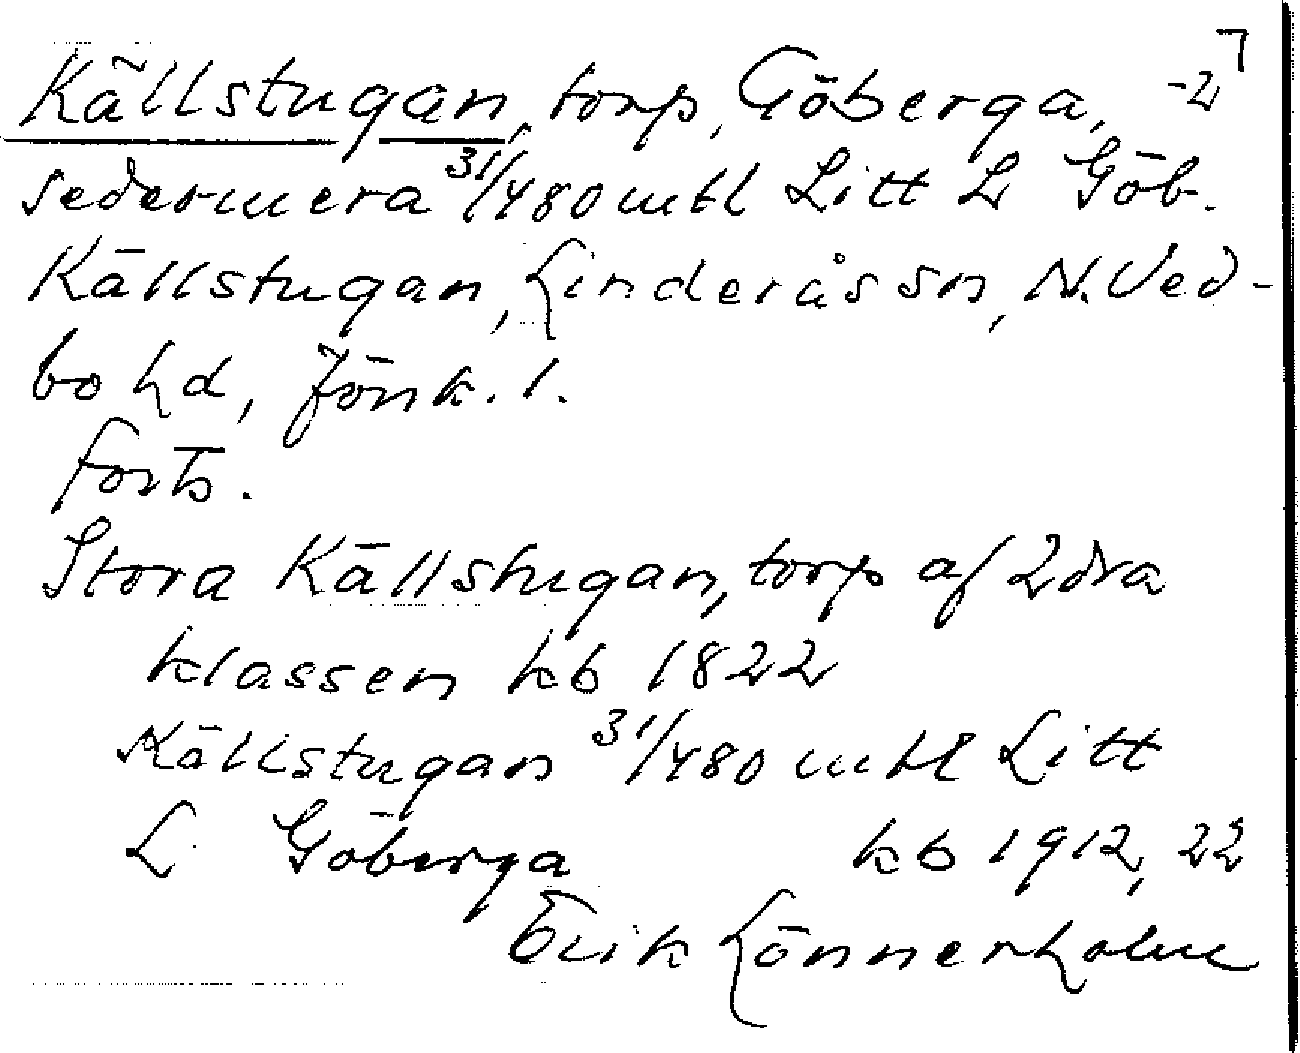 Källstugan, torp, Göberga, -2⁷
sedermera 31/480 mtl Litt L Göb.
Källstugan, Linderås sn, N. Ved-
bo hd, Jönk. l.
forts.
Stora Källstugan, torp af 2dra
klassen kb 1822
Källstugan 31/480 mtl Litt
L Göberga kb 1912, 22
Erik Lönnerholm